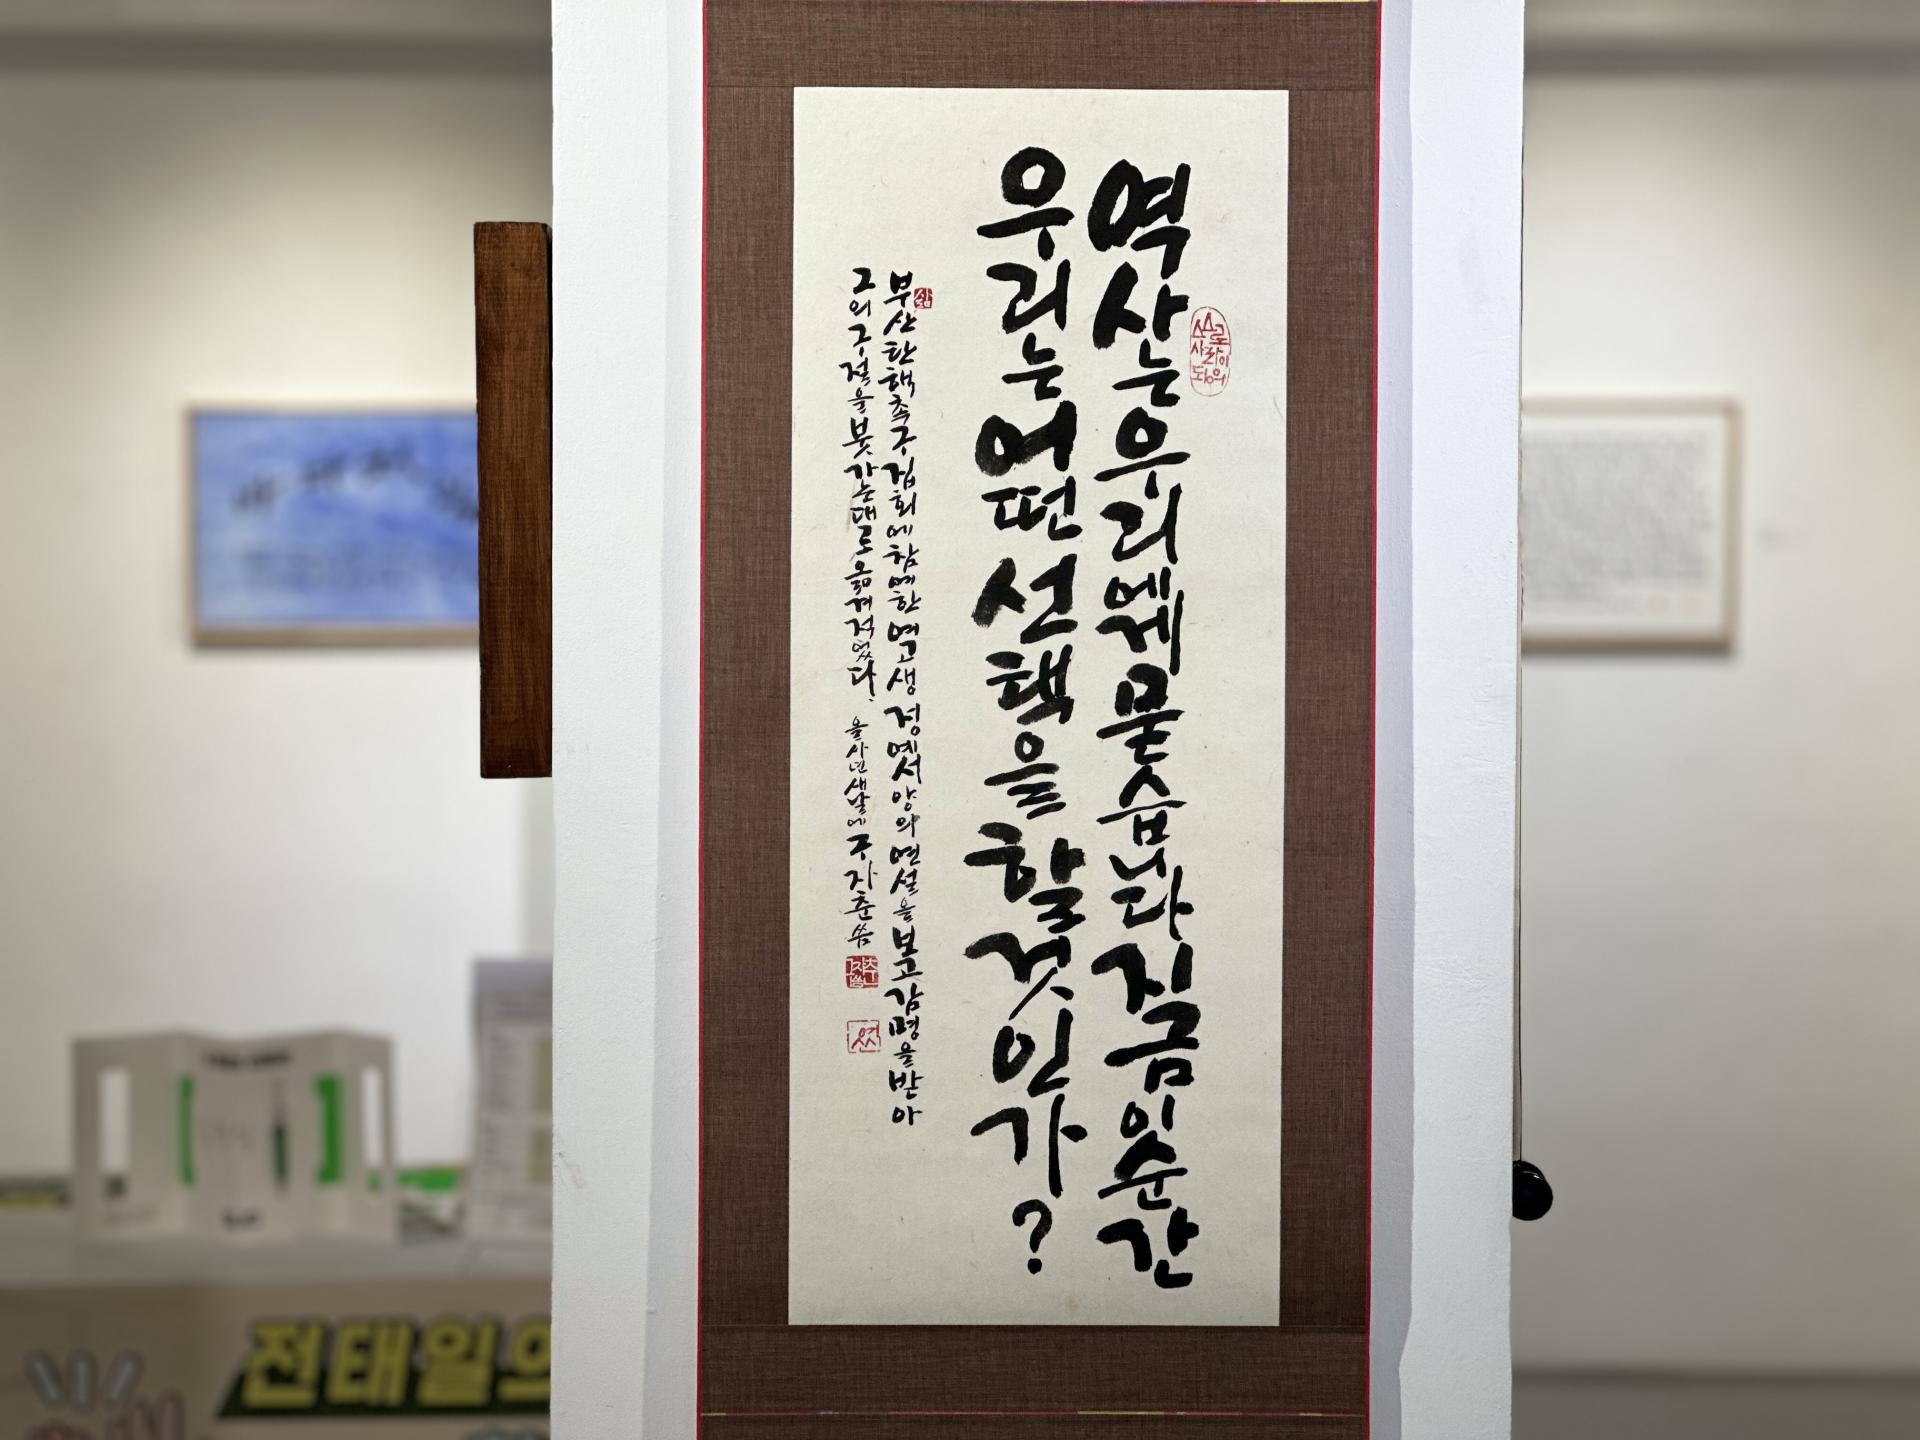 역사는 우리에게 묻습니다 지금 이 순간
우리는 어떤 선택을 할 것인가?
부산 탄핵 촉구 집회에 참예한 여고생 정예서 양의 연설을 보고 감명을 받아
그의 구절을 붓 가는 대로 옮겨 적었다. 을사년 새날에 구자춘 씀
삶
전태일의